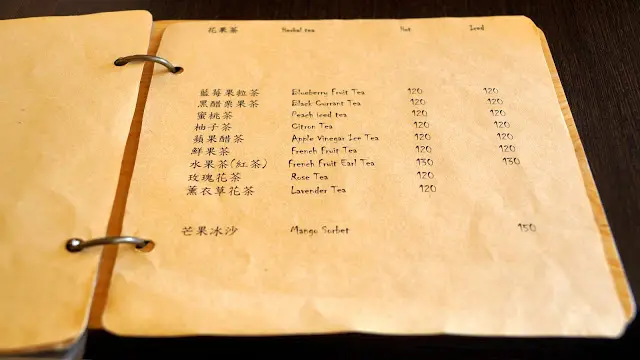 花果茶 Herbal tea Hot Iced
藍莓果粒茶 Blueberry Fruit Tea 120 120
黑醋栗果茶 Black Currant Tea 120 120
蜜桃茶 Peach iced tea 120 120
柚子茶 Citron Tea 120 120
蘋果醋茶 Apple Vinegar Ice Tea 120 120
鮮果茶 French Fruit Tea 120 120
水果茶(紅茶) French Fruit Earl Tea 130 130
玫瑰花茶 Rose Tea 120
薰衣草花茶 Lavender Tea 120
芒果冰沙 Mango Sorbet 150